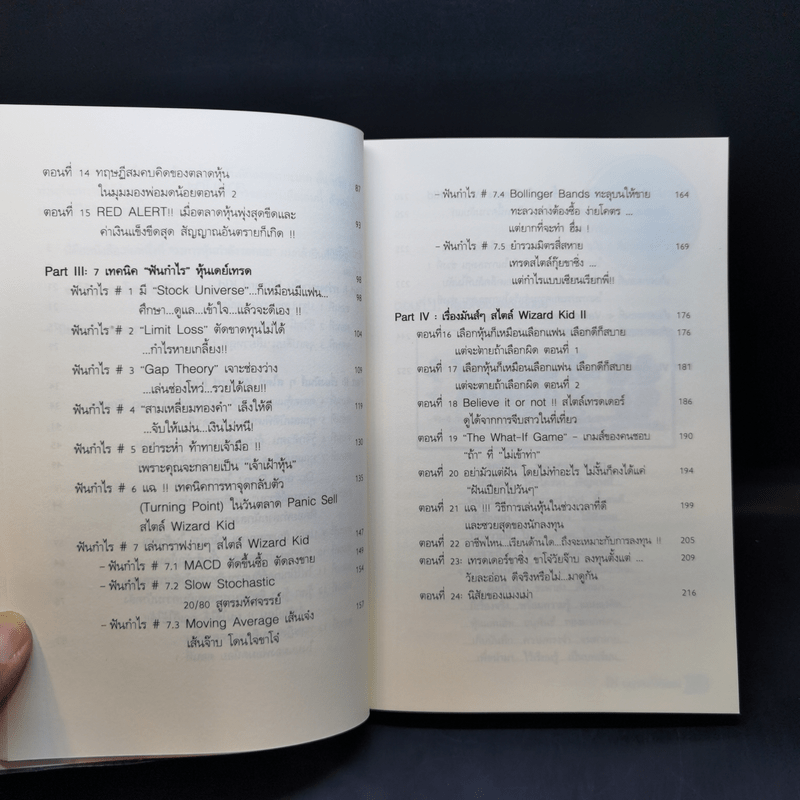 ตอนที่ 14 ทฤษฎีสมคบคิดของตลาดหุ้น 87
ในมุมมองพ่อมดน้อยตอนที่ 2
ตอนที่ 15 RED ALERT!! เมื่อตลาดหุ้นพุ่งสุดขีดและ 93
ค่าเงินแข็งขีดสุด สัญญาณอันตรายก็เกิด !!
Part III: 7 เทคนิค "ฟันกำไร" หุ้นเดย์เทรด 98
ฟันกำไร # 1 มี "Stock Universe"..ก็เหมือนมีแฟน... 98
ศึกษา...ดูแล...เข้าใจ...แล้วจะดีเอง !!
ฟันกำไร # 2 "Limit Loss" ตัดขาดทุนไม่ได้ 104
...กำไรหายเกลี้ยง!!
ฟันกำไร # 3 "Gap Theory" เจาะช่องว่าง 110
...เล่นช่องโหว่...รวยได้เลย!!
ฟันกำไร # 4 "สามเหลี่ยมทองคำ" เล็งให้ดี 119
...จับให้แม่น...เงินไม่หนี!
ฟันกำไร # 5 อย่าระห่ำ ท้าทายเจ้ามือ !! 130
เพราะคุณจะกลายเป็น "เจ้าเฝ้าหุ้น"
ฟันกำไร # 6 แฉ !! เทคนิคการหาจุดกลับตัว 135
(Turning Point) ในวันตลาด Panic Sell
สไตล์ Wizard Kid
ฟันกำไร # 7 เล่นกราฟง่ายๆ สไตล์ Wizard Kid 147
-ฟันกำไร # 7.1 MACD ตัดขึ้นซื้อ ตัดลงขาย 149
-ฟันกำไร # 7.2 Slow Stochastic 154
20/80 สูตรมหัศจรรย์
-ฟันกำไร # 7.3 Moving Average เส้นเจ๋ง 157
เส้นจ๊าบ โดนใจขาโจ๋
-ฟันกำไร # 7.4 Bollinger Bands ทะลุบนให้ขาย 164
ทะลวงล่างต้องซื้อ ง่ายโคตร ...
แต่ยากที่จะทำ ฮึ่ม !
-ฟันกำไร # 7.5 ยำรวมมิตรสี่สหาย 169
เทรดสไตล์กุ๊ยซาซิ่ง ...
แต่กำไรแบบเซียนเรียกพี่!!
Part IV : เรื่องมันส์ๆ สไตล์ Wizard Kid II 176
ตอนที่16 เลือกหุ้นก็เหมือนเลือกแฟน เลือกดีก็สบาย 176
แต่จะตายถ้าเลือกผิด ตอนที่ 1
ตอนที่ 17 เลือกหุ้นก็เหมือนเลือกแฟน เลือกดีก็สบาย 181
แต่จะตายถ้าเลือกผิด ตอนที่ 2
ตอนที่ 18 Believe it or not !! สไตล์เทรดเดอร์ 186
ดูได้จากการจีบสาวในที่เที่ยว
ตอนที่ 19 "The What-If Game" - เกมส์ของคนชอบ 190
"ถ้า" ที่ "ไม่เข้าท่า"
ตอนที่ 20 อย่ามัวแต่ฝัน โดยไม่ทำอะไร ไม่งั้นก็คงได้แค่ 194
"ฝันเปียกไปวันๆ"
ตอนที่ 21 แฉ !!! วิธีการเล่นหุ้นในช่วงเวลาที่ดี
และซวยสุดของนักลงทุน
ตอนที่ 22 อาชีพไหน...เรียนด้านใด...ถึงจะเหมาะกับการลงทุน !! 205
ตอนที่ 23: เทรดเดอร์ขาซิ่ง ขาโจ๋วัยจ๊าบ ลงทุนตั้งแต่ ... 209
วัยละอ่อน ดีจริงหรือไม่...มาดูกัน
ตอนที่ 24: นิสัยของแมงเม่า 216